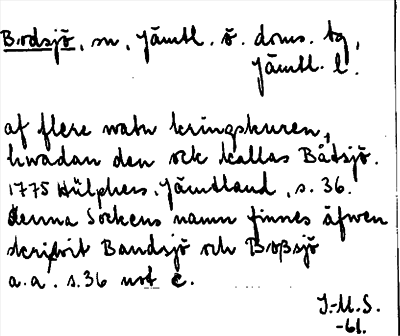 Bodsjö, sn, Jämtl. ö. doms. tg,
Jämtl. l.
af flere watn kringskuren,
hwadan den ock kallas Båtsjö.
1775 Hülphers, Jämtland, s. 36.
Denna Sockens namn finnes äfwen
skrifvit Bandsjö och Boßsjö
a.a, s.36 not c.
J.-M.S.
-61.